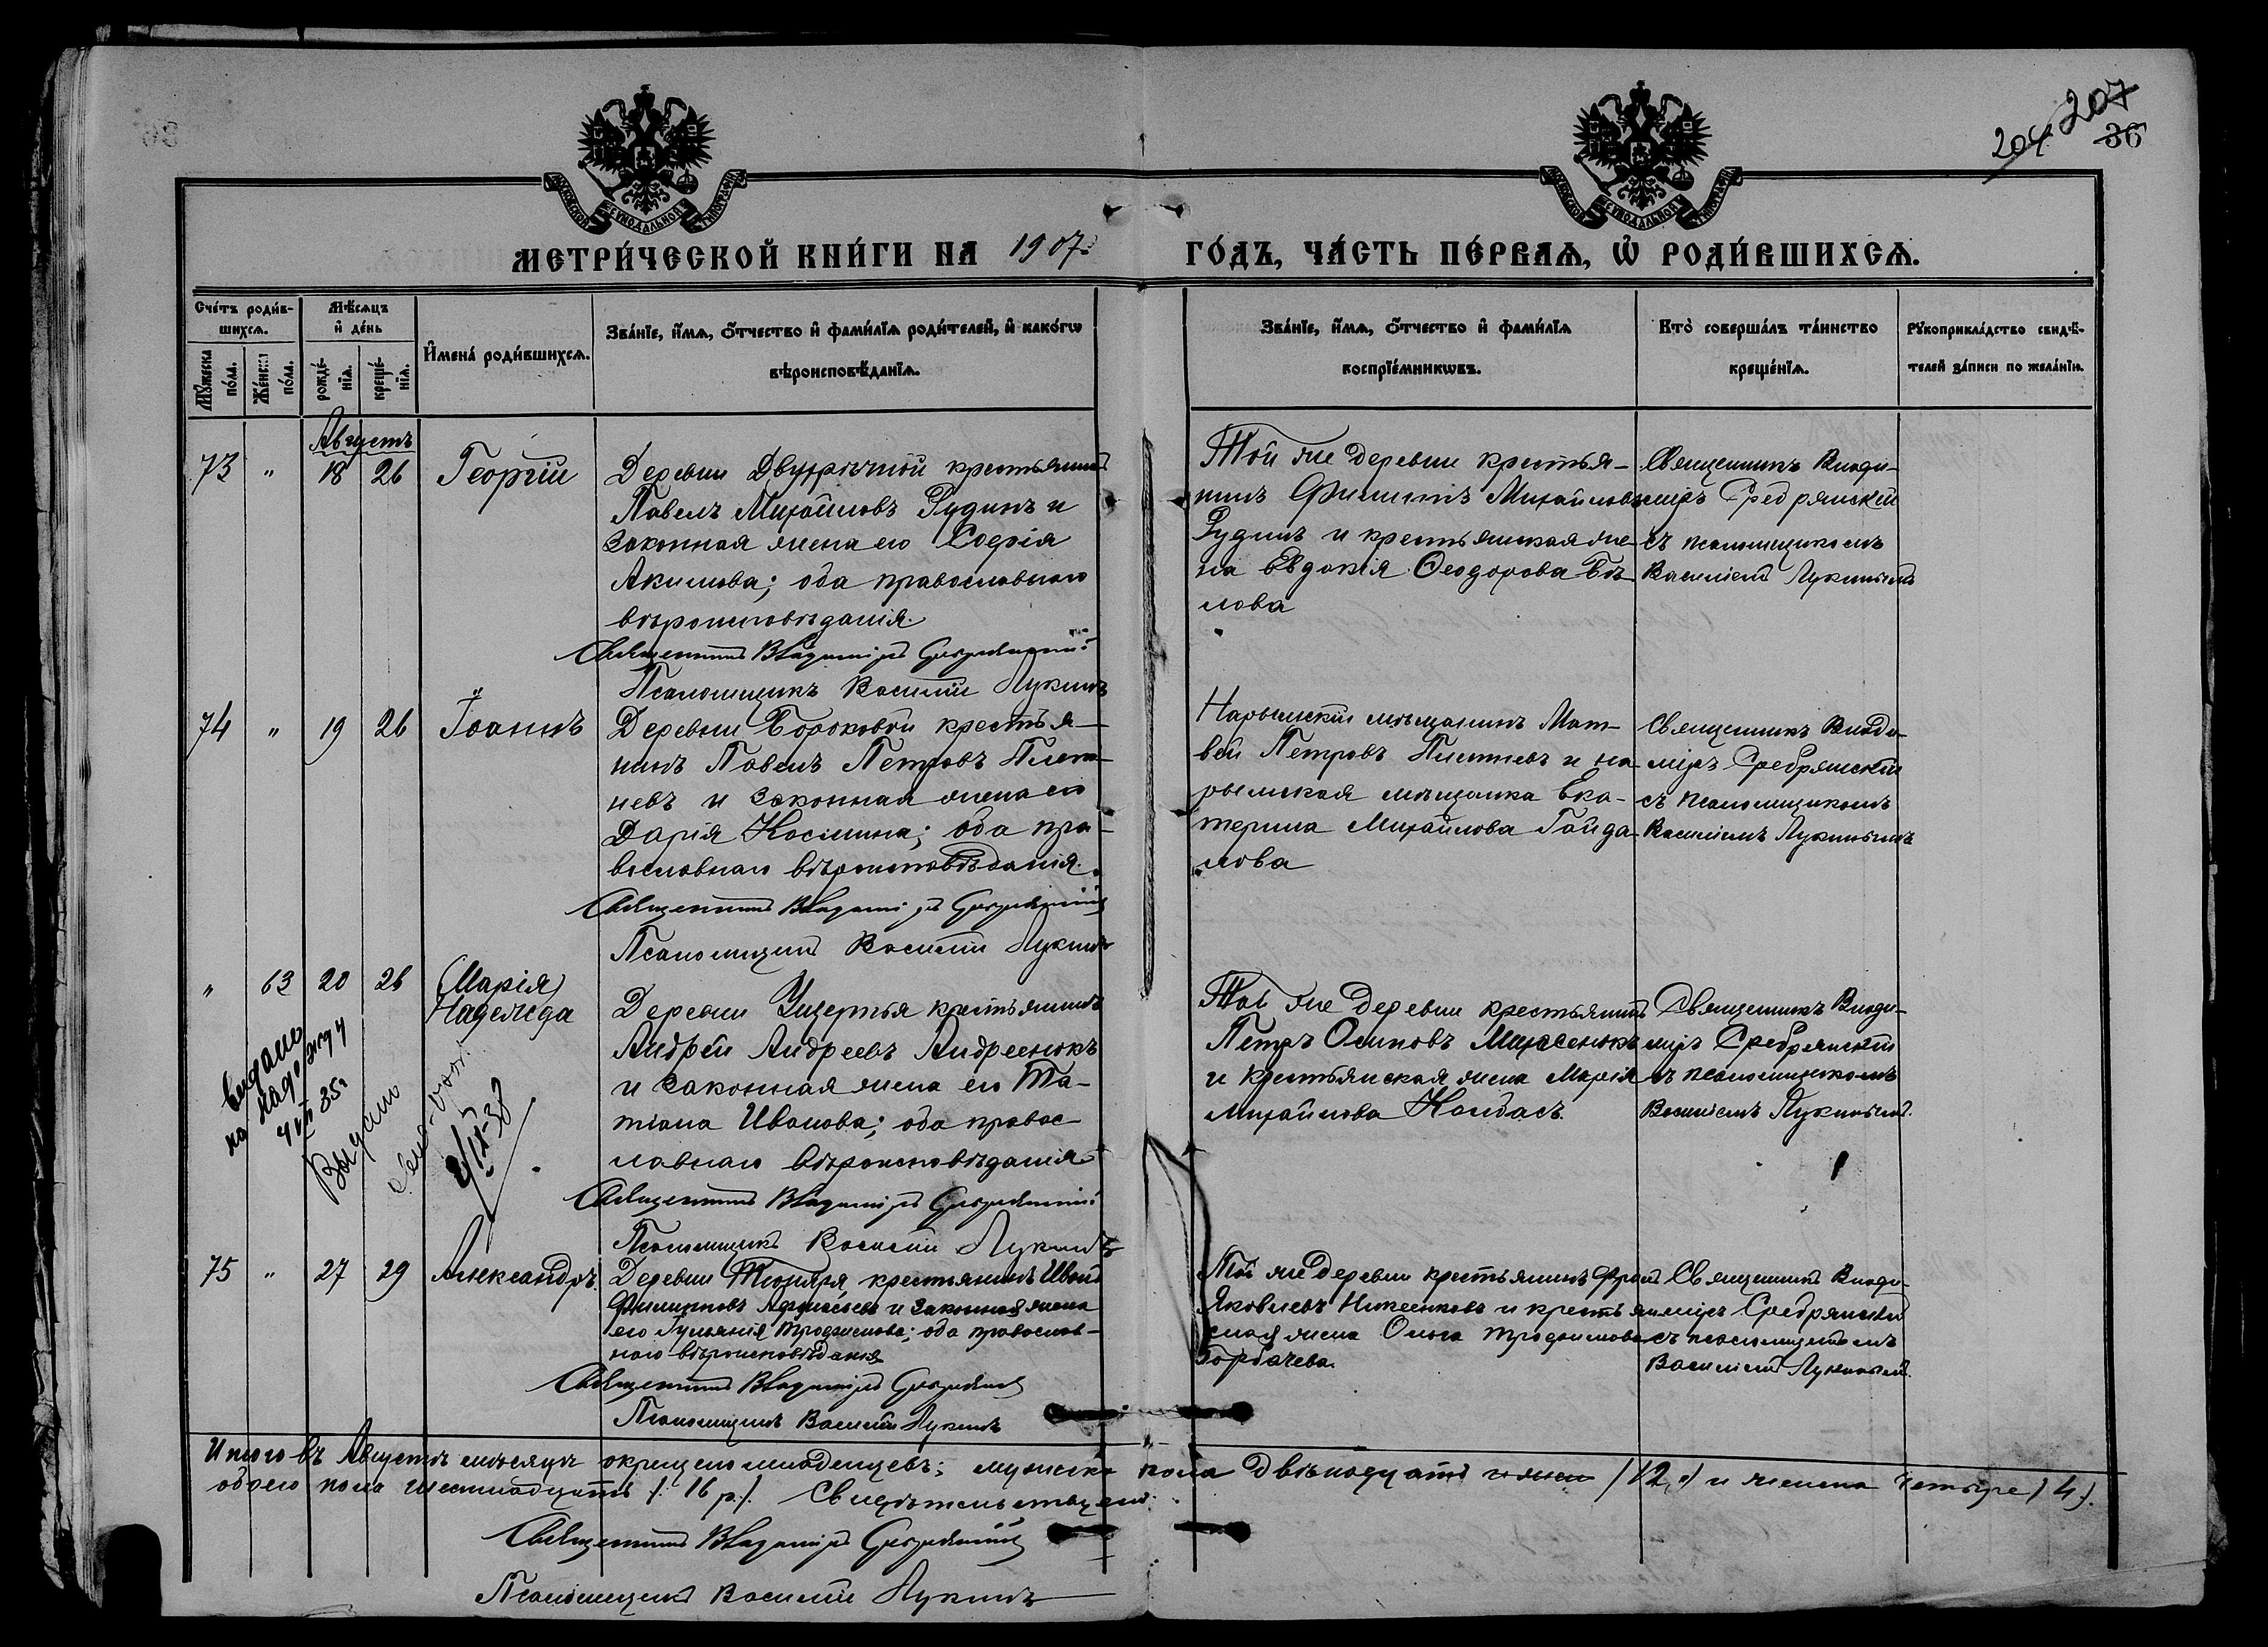 207
204
36
МЕТРИ́ЧЕСКОЙ КНИ́ГИ НА 1907 ГО́ДЪ, ЧА́СТЬ ПЕ́РВАѦ, Ѡ҆ РОДИ́ВШИХСѦ.
Сче́тъ роди́в-
шихсѧ.
Мꙋжеска по́ла.
Же́нска по́ла.
Мѣ́сѧцъ
и҆ де́нь
рожде́-
нїѧ.
креще́-
нїѧ.
И҆мена̀ роди́вшихсѧ.
Зва́нїе, и҆́мѧ, ѻ҆́тчество и҆ фами́лїѧ роди́телей, и҆ како́гѡ
вѣроисповѣ́данїѧ.
Зва́нїе, и҆́мѧ, ѻ҆́тчество и҆ фами́лїѧ
воспрїе́мникѡвъ.
Кто̀ соверша́лъ та́инство
креще́нїѧ.
Рꙋкоприкла́дство свидѣ́-
телей за́писи по жела́нїю.
Августъ
73 " 18 26 Георгій
Деревни Двурѣчной крестьянинъ
Павелъ Михайловъ Рудинъ и
законная жена его Софія
Акимова; оба православнаго
вѣроисповѣданія.
Священникъ Владиміръ Сребрянскій
Псаломщикъ Василій Лукинъ
Той же деревни крестья-
нинъ Филиппъ Михайловъ
Рудинъ и крестьянская же-
на Евдокія Ѳеодорова Бѣ-
лова
Священникъ Влади-
міръ Сребрянскій
съ псаломщикомъ
Василіемъ Лукинымъ
74 " 19 26 Іоаннъ
Деревни Борковой крестья-
нинъ Павелъ Петровъ
и законная жена его
Дарія Косьмина; оба пра-
вославнаго вѣроисповѣданія.
Священникъ Владиміръ Сребрянскій
Псаломщикъ Василій Лукинъ
Нарымскій мѣщанинъ Мат-
вей Петровъ и на-
рымская мѣщанка Ека-
терина Михайлова Гайда-
лова
Священникъ Влади-
міръ Сребрянскій
съ псаломщикомъ
Василіемъ Лукинымъ
" 63 20 26 (Марія)
Надежда
Деревни крестьянинъ
Андрей Андреевъ Андреенокъ
и законная жена его Та-
тіана Иванова; оба правос-
лавнаго вѣроисповѣданія
Священникъ Владиміръ Сребрянскій
Псаломщикъ Василій Лукинъ
Той же деревни крестьянинъ
Петръ Осиповъ
и крестьянская жена Марія
Михайлова
Священникъ Влади-
міръ Сребрянскій
съ псаломщикомъ
Василіемъ Лукинымъ.
выдано
на надежду
4 VII 35г
Выдано
2/IX-38
75 " 27 29 Александръ.
Деревни крестьянинъ Иванъ
Филипповъ и законная жена
его Трофимова; оба православ-
наго вѣроисповѣданія
Священникъ Владиміръ Сребрянскій
Псаломщикъ Василій Лукинъ
Той же деревни крестьянинъ
Яковлевъ и крестьян-
ская жена Ольга Трофимова
Горбачева.
Священникъ Влади-
міръ Сребрянскій
съ псаломщикомъ
Василіемъ Лукинымъ.
Итого въ Августѣ мѣсяцѣ окрещено младенцевъ; мужска пола двѣнадцать /12/ и женска четыре /4/.
обоего пола шестнадцать /16 р./. Свидѣтельствуемъ:
Священникъ Владиміръ Сребрянскій
Псаломщикъ Василій Лукинъ